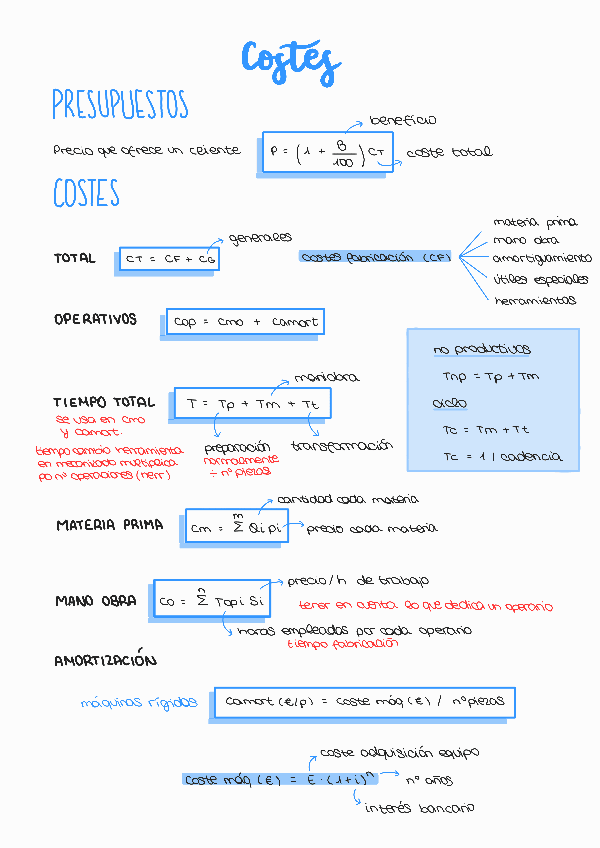 Costes
PRESUPUESTOS
beneficio
Precio que ofrece un cliente
P = (1 + B/100) CT
coste total
COSTES
generales
TOTAL
CT = CF + CG
costes fabricación (CF)
materia prima
mano obra
amortiguamiento
útiles especiales
herramientas
OPERATIVOS
Cop = Cmo + Camort
no productivos
Tnp = Tp + Tm
ciclo
Tc = Tm + Tt
Tc = 1 / cadencia
maniobra
TIEMPO TOTAL
T = Tp + Tm + Tt
se usa en cmo
y camort.
preparación
transformación
normalmente
÷ nº piezas
tiempo cambio herramienta
en mecanizado multiplica
po nº operaciones (nerr)
cantidad cada materia
MATERIA PRIMA
Cm = m Σ Qi pi
precio cada materia
precio/h de trabajo
MANO OBRA
Co = n Σ Topi Si
tener en cuenta lo que dedica un operario
horas empleadas por cada operario
tiempo fabricación
AMORTIZACIÓN
máquinas rígidas
Camort (€/p) = coste máq (€) / nº piezas
coste adquisición equipo
coste máq (€) = E · (1+i)ⁿ
nº años
interés bancario